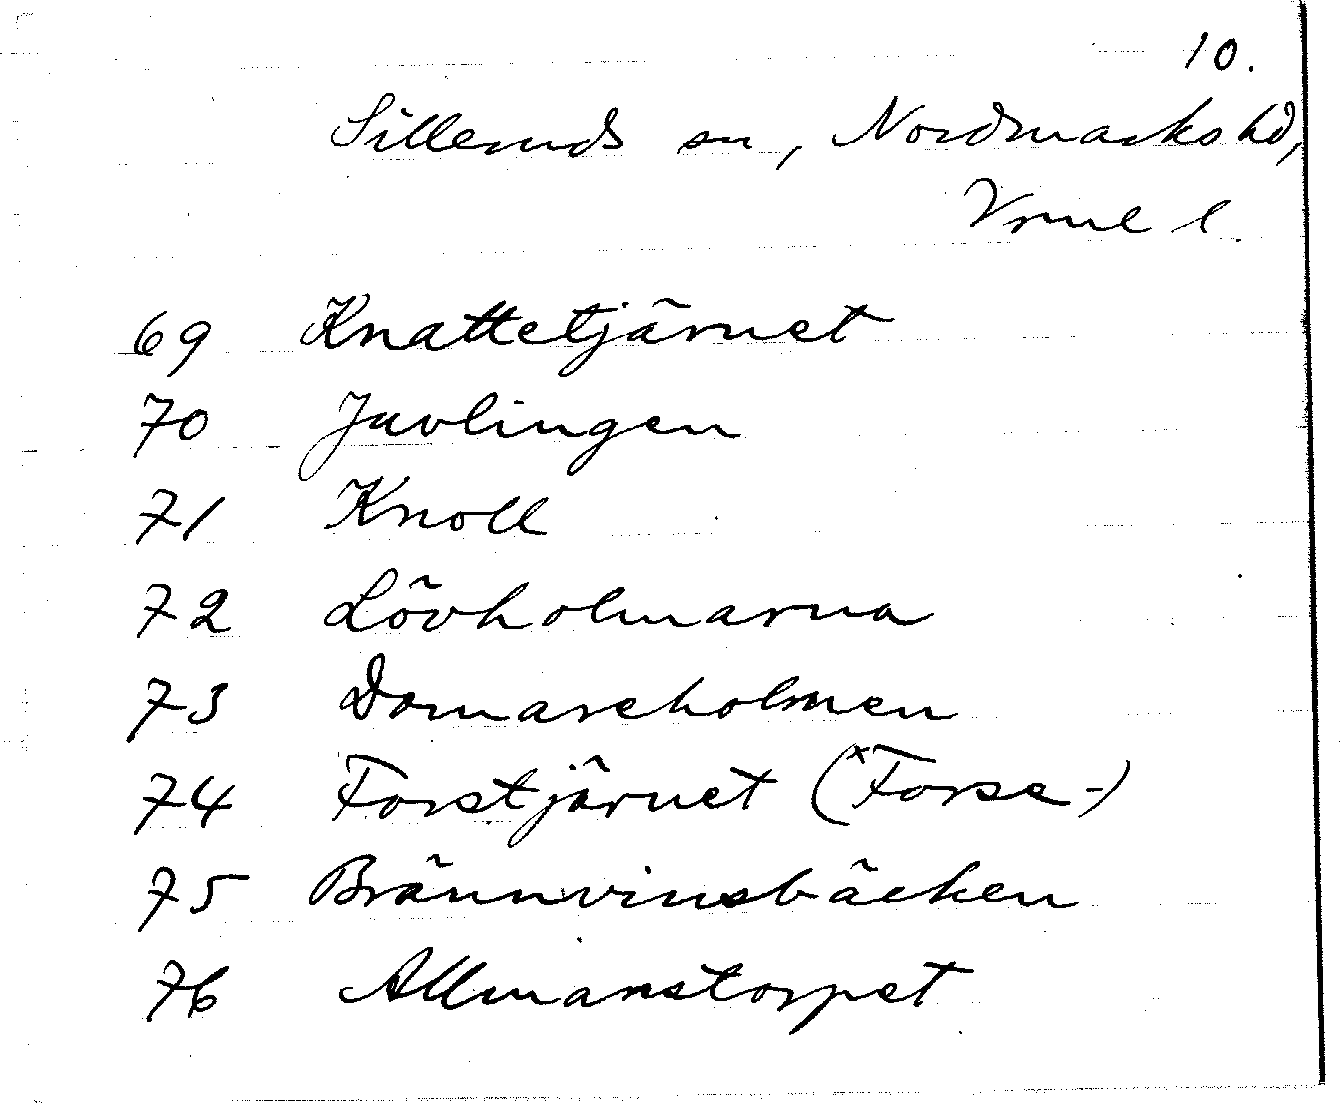 10.
Silleruds sn, Nordmarks hd,
Vrml l.
69 Knattetjärnet
70 Juvlingen
71 Knoll
72 Lövholmarna
73 Domareholmen
74 Forstjärnet (ˣForse-)
75 Brännvinsbäcken
76 Allmanstorpet